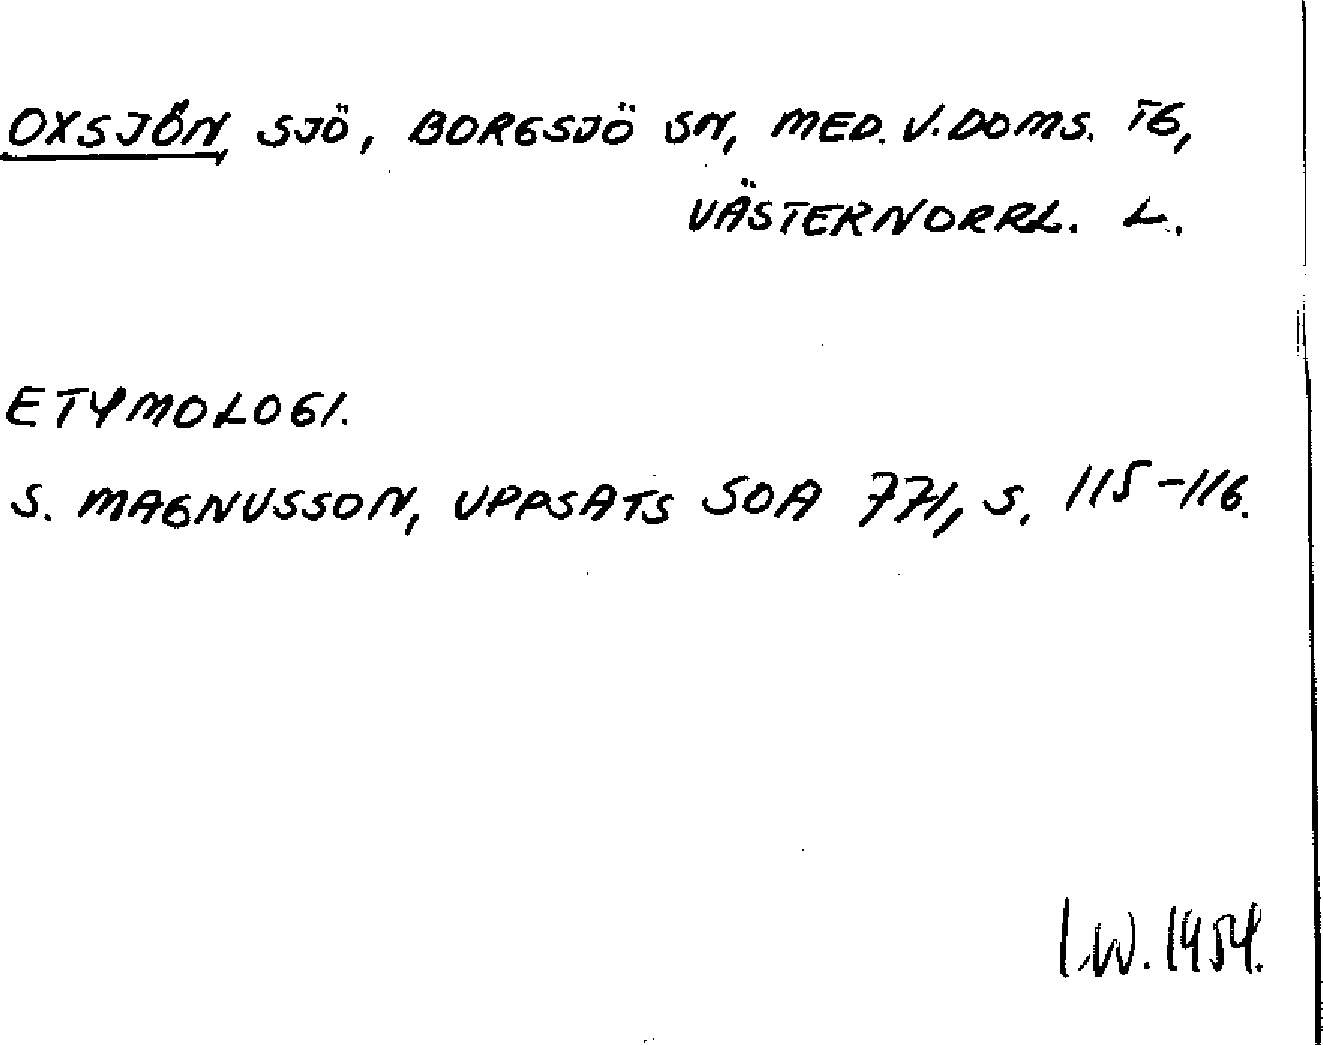 OXSJÖN, SJÖ, BORGSJÖ SN, MED. V. DOMS. TG,
VÄSTERNORRL. L.
ETYMOLOGI.
S. MAGNUSSON, UPPSATS SOA 771, S. 115-116.
I.W. 1954.